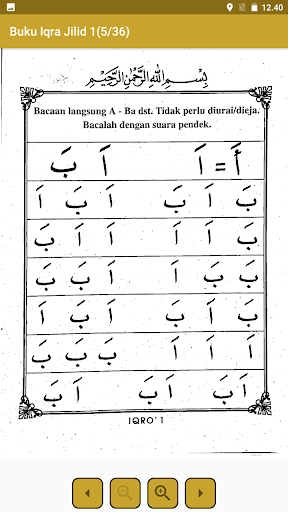 Buku Iqra Jilid 1(5/36)
12.40
بِسْمِ اللهِ الرَّحْمٰنِ الرَّحِيْمِ
Bacaan langsung A - Ba dst. Tidak perlu diurai/dieja.
Bacalah dengan suara pendek.
أَ = اَ اَ بَ
اَ بَ بَ اَ بَ اَ
بَ اَ اَ بَ اَ بَ
بَ بَ اَ اَ بَ بَ
اَ اَ بَ اَ بَ اَ
اَ اَ اَ بَ بَ بَ
اَ بَ اَ بَ اَ بَ
IQRO' 1